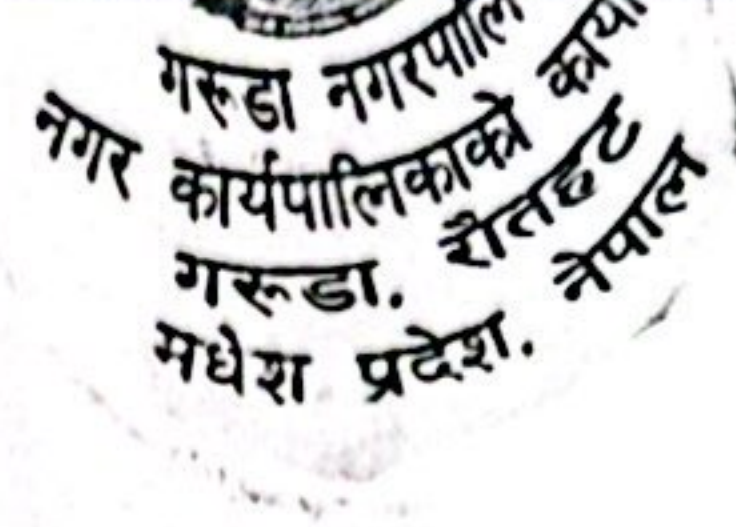 गरूडा नगरपालि
नगर कार्यपालिकाको कार्या
गरूडा. रौतहट
मधेश प्रदेश. नेपाल